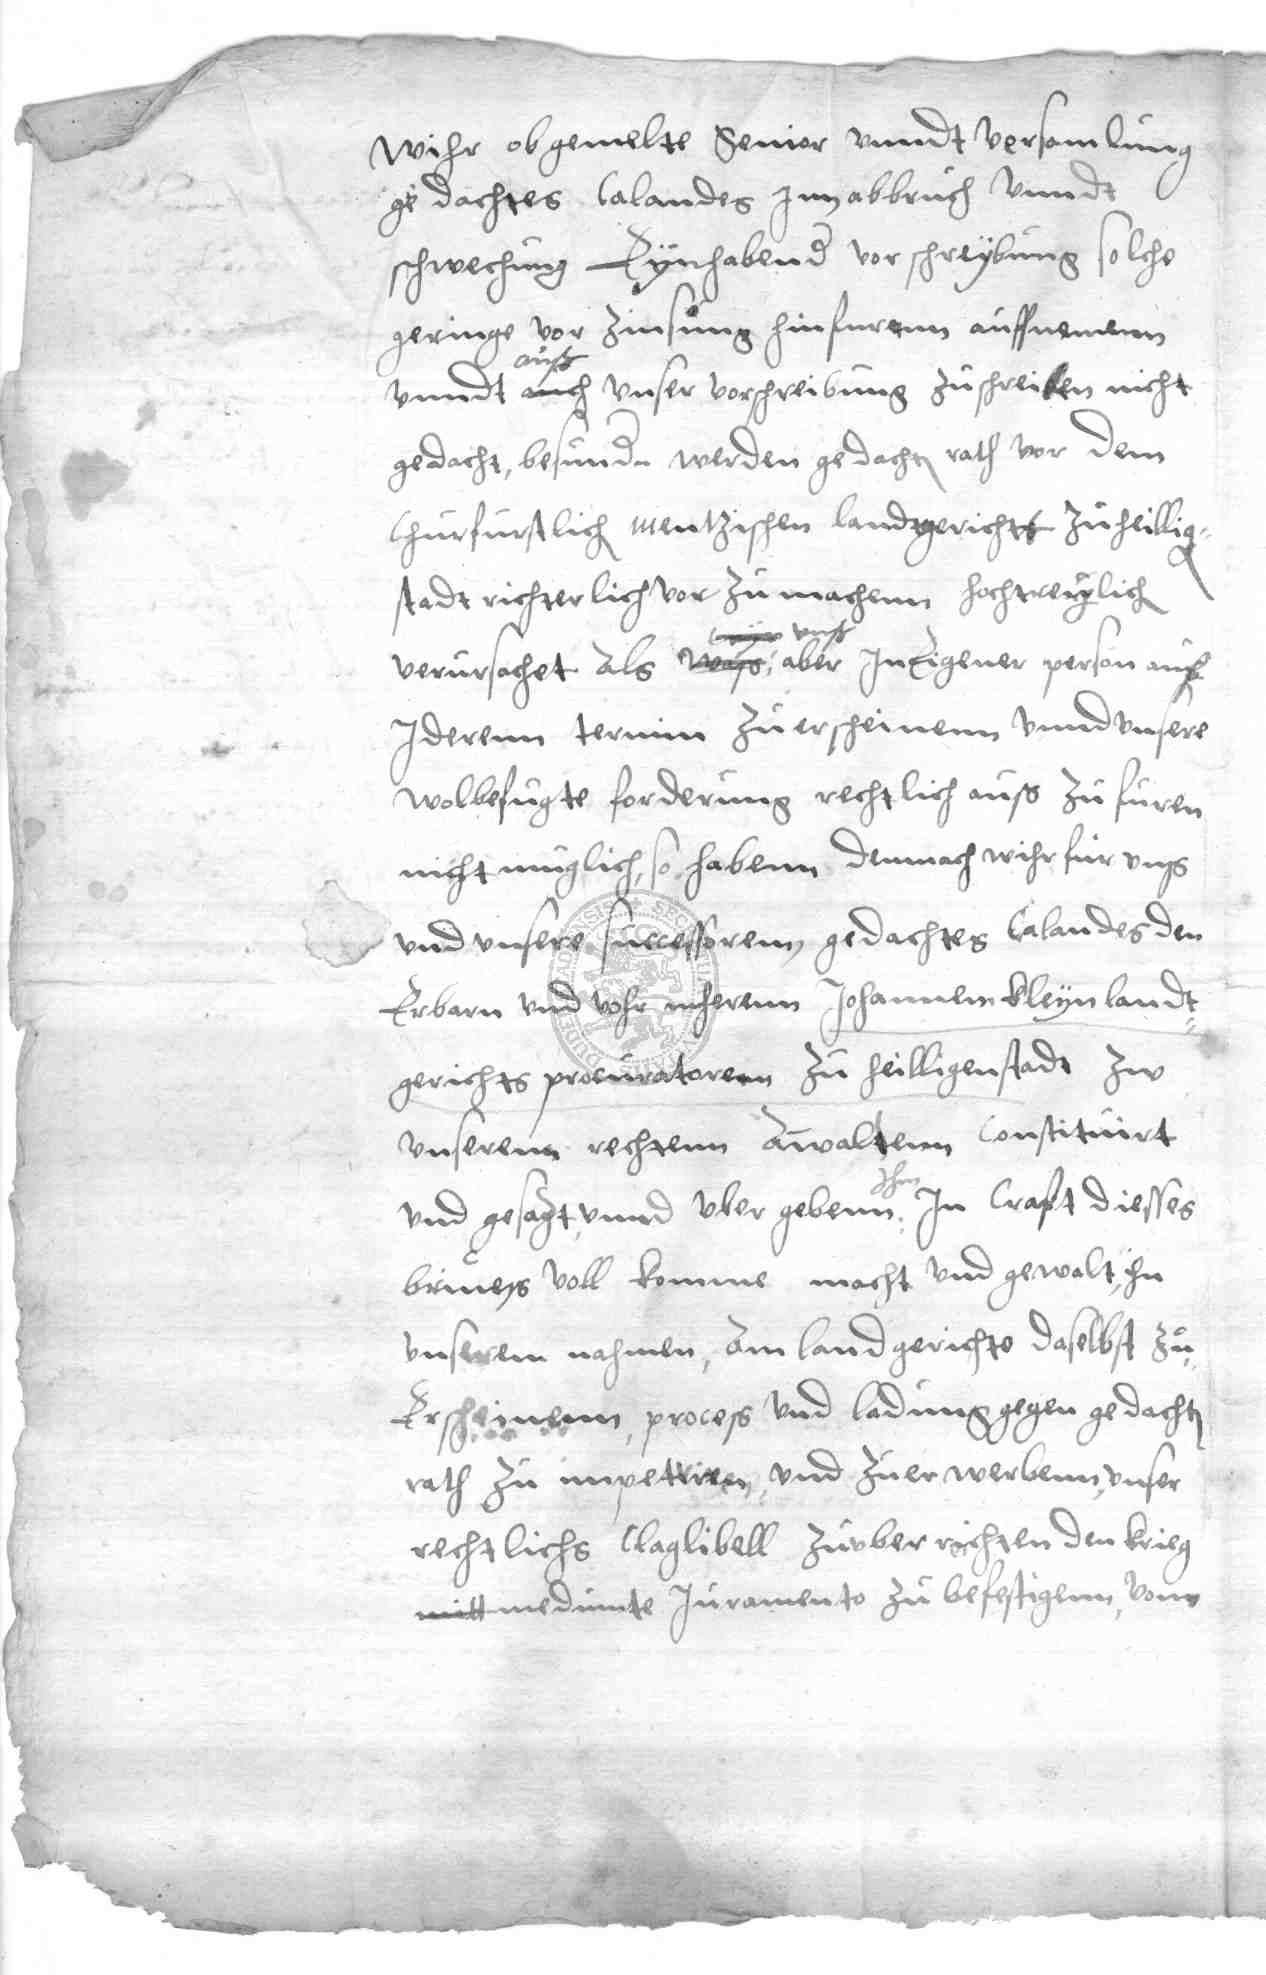 Wihr obgemelte Senior vnndt versamlung
gedachtes Calandes Inn abbruch vnndt
schwechung Eynhabend vorschreybung solche
geringe vorzinsung hinfurenn auffnemenn
auß
vnndt auch vnser vorschreibung zuschreiten nicht
gedacht, besundern werden gedachten rath vor dem
Churfurstlich Mentzischen landtgericht zu heillig-
stadt richterlich vor zu machenn hochtreulich
vnß
verursachet Als aber In Eigener person auff
Iderenn termin zu erscheinenn vnnd vnsere
wolbefugte forderung rechtlich auß zu furen
nicht muglich, so habenn demnach wihr fur vnß
vnd vnsere successorenn gedachtes Calandes den
Erbarn vnd wohrnherenn Johannem Kleyn landt-
gerichts procuratorenn zu heilligenstadt zw
vnserenn rechtenn Anwaltenn Constituirt
Ihm
vnd gesatzt, vnnd vbergebenn In Crafft diesses
brieueß vollkomme macht vnd gewalt, In
vnserem nahmen, Am landgerichte daselbst zu
Erscheinenn, process vnd ladung gegen gedachten
rath zu impetriren, vnd zuerwerbenn, vnser
rechtlichs Claglibell zuvberrichten den krieg
mitt mediante Juramento zu befestigenn, vonn